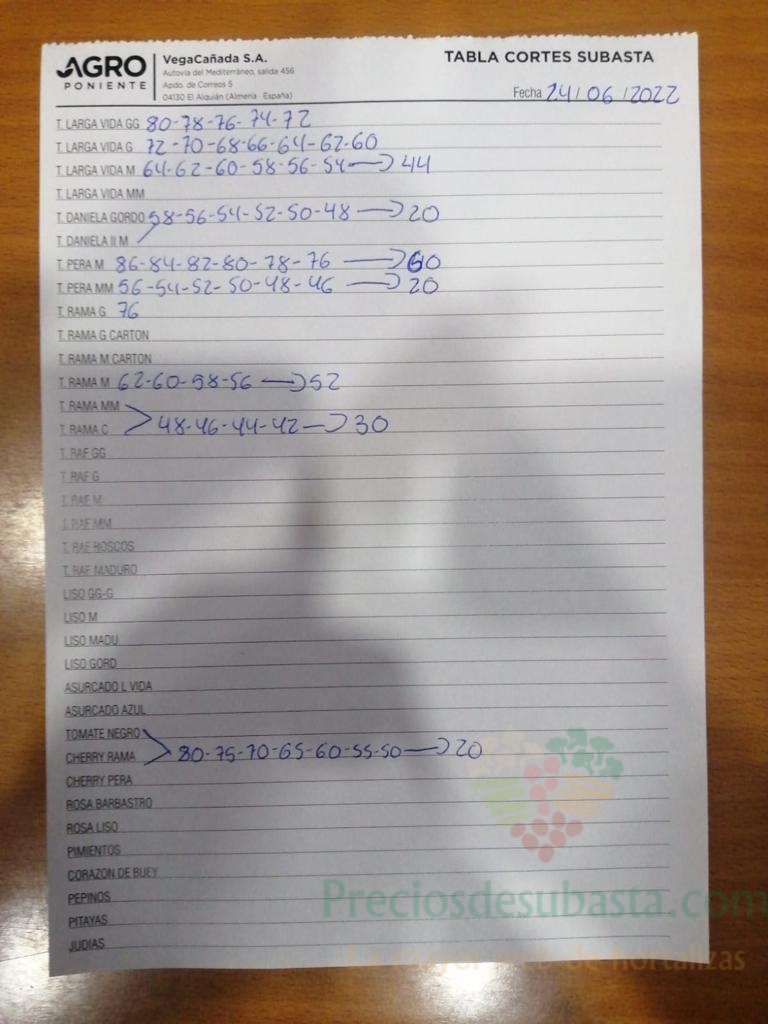 AGRO
PONIENTE
VegaCañada S.A.
Autovía del Mediterráneo, salida 456
Apdo. de Correos 5
04130 El Alquián (Almería - España)
TABLA CORTES SUBASTA
Fecha 24/06/2022
T. LARGA VIDA GG 80-78-76-74-72
T. LARGA VIDA G 72-70-68-66-64-62-60
T. LARGA VIDA M 64-62-60-58-56-54→44
T. LARGA VIDA MM
T. DANIELA GORDO 58-56-54-52-50-48→20
T. DANIELA II M
T. PERA M 86-84-82-80-78-76→60
T. PERA MM 56-54-52-50-48-46→20
T. RAMA G 76
T. RAMA G CARTON
T. RAMA M CARTON
T. RAMA M 62-60-58-56→52
T. RAMA MM
T. RAMA C 48-46-44-42→30
T. RAF GG
T. RAF G
T. RAF M
T. RAF MM
T. RAF ROSCOS
T. RAF MADURO
LISO GG-G
LISO M
LISO MADU
LISO GORD
ASURCADO L VIDA
ASURCADO AZUL
TOMATE NEGRO
CHERRY RAMA 80-75-70-65-60-55-50→20
CHERRY PERA
ROSA BARBASTRO
ROSA LISO
PIMIENTOS
CORAZON DE BUEY
PEPINOS
PITAYAS
JUDIAS
Preciosdesubasta.com
La mayor web de hortalizas